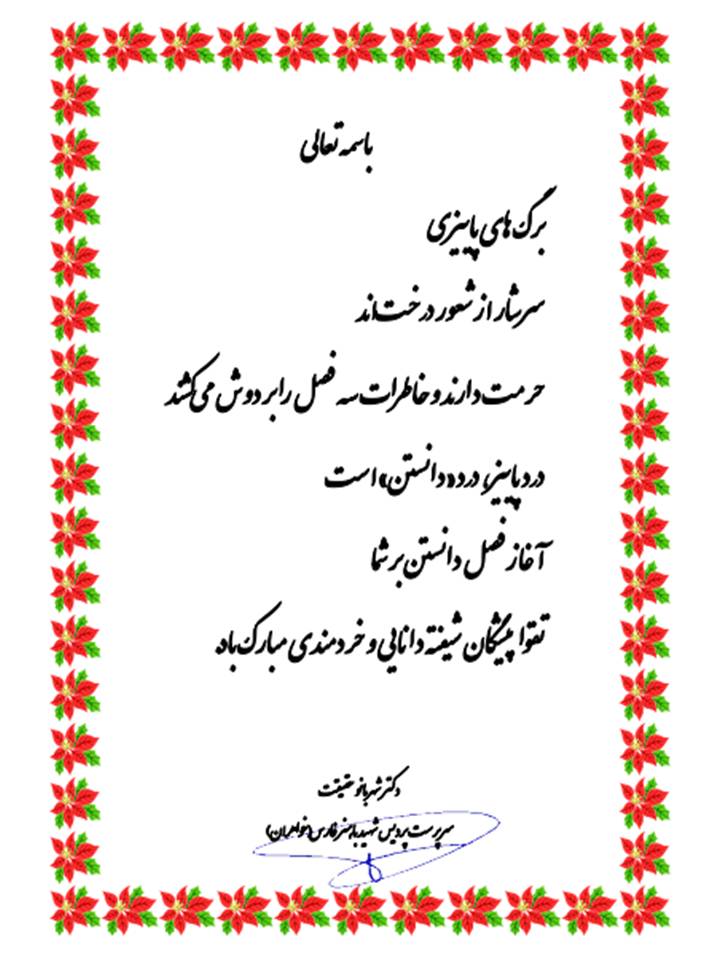 باسمه تعالی
برگ های پاییزی
سرشار از شعور درخت‌اند
حرمت دارند و خاطرات سه فصل را بر دوش می‌کشند
درد پاییز، درد «دانستن» است
آغاز فصل دانستن بر شما
تقوا پیشگان شیفته دانایی و خردمندی مبارک باد.
دکتر شهربانو حقیقت
سرپرست پردیس شهید باهنر فارس (خواهران)